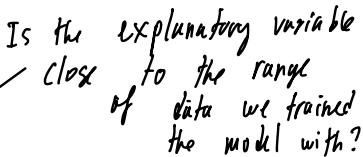 Is the explanatory variable
close to the range
of data we trained
the model with?